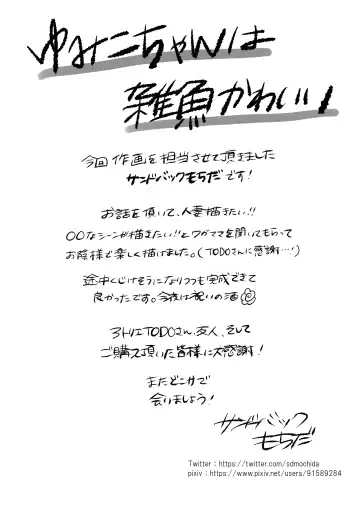 ゆみこちゃんは
雑魚かわいい!
今回作画を担当させて頂きました
サンドバックもちだです!
お話を頂いて、人妻描きたい!!
〇〇なシーンが描きたい!!とワガママを聞いてもらって
お陰様で楽しく描けました。(TODOさんに感謝…!)
途中くじけそうになりつつも完成できて
良かったです。今夜は祝いの酒
アトリエTODOさん、友人、そして
ご購入頂いた皆様に大感謝!
またどこかで
会いましょう!
サンドバック
もちだ
Twitter:https://twitter.com/sdmochida
pixiv:https://www.pixiv.net/users/91589284